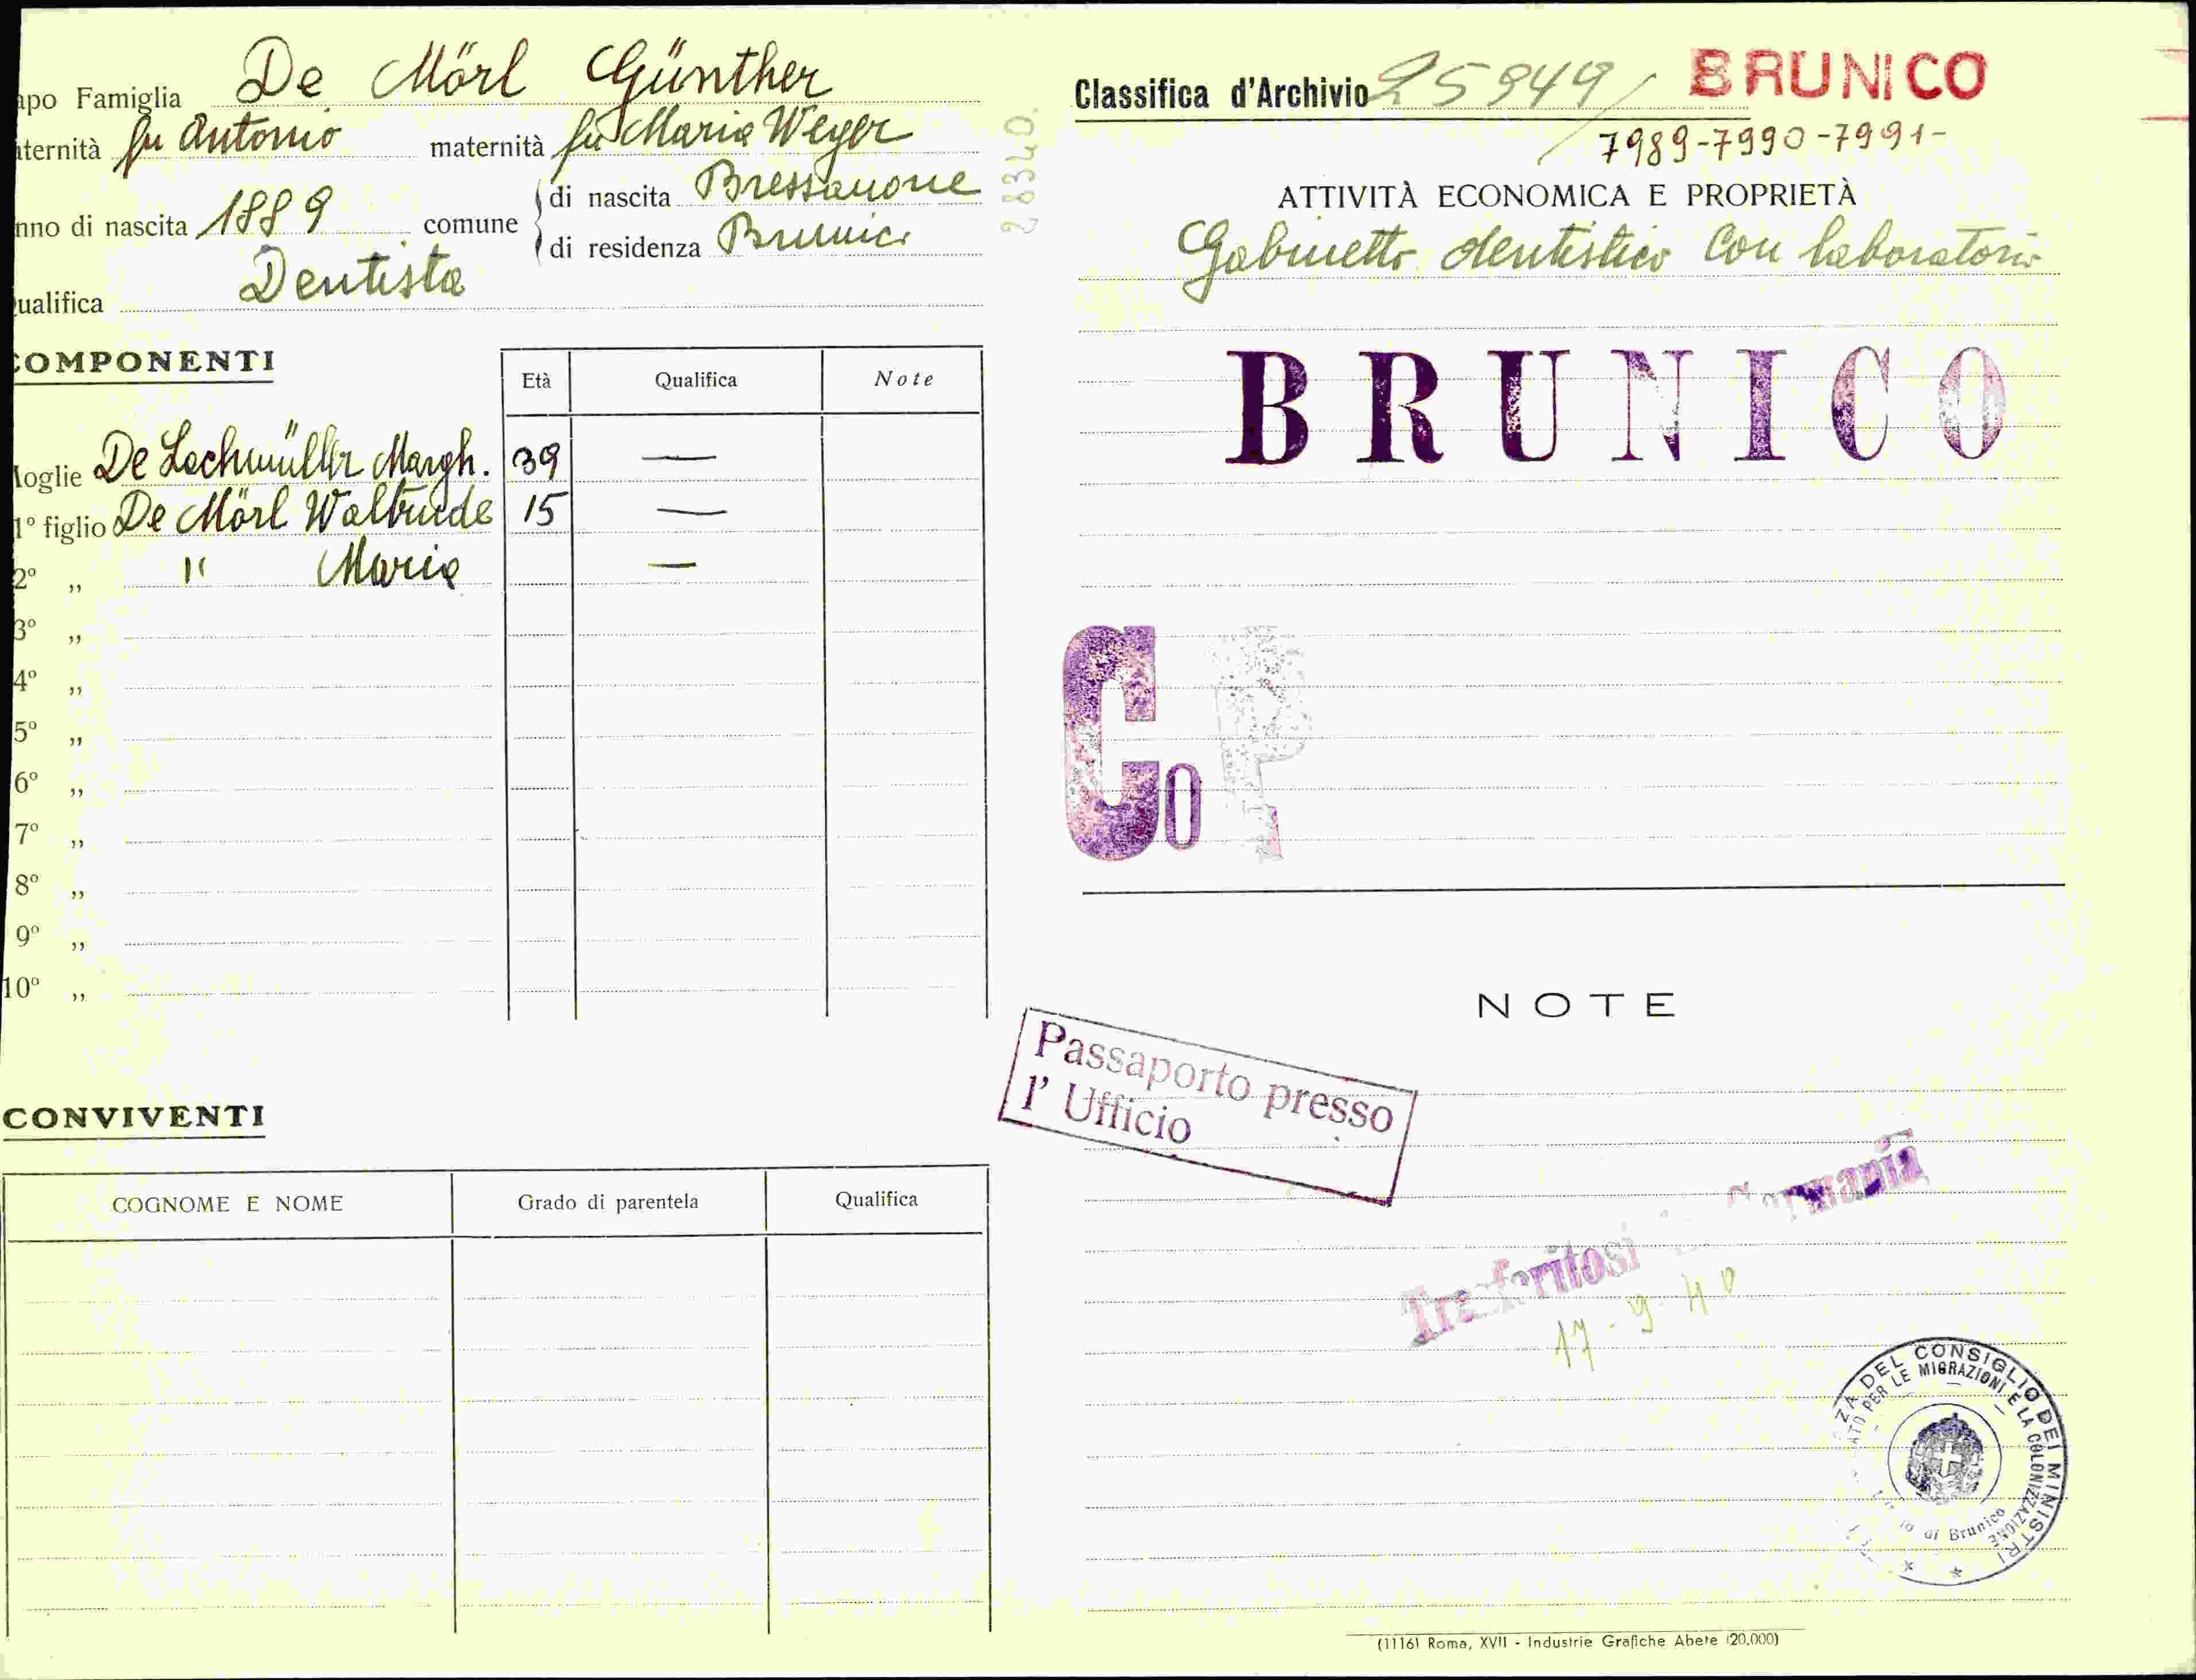 apo Famiglia De Mörl Günther
aternità fu Antonio maternità fu Maria Weger
nno di nascita 1889 comune di nascita Bressanone
di residenza Brunico
ualifica Dentista
COMPONENTI Età Qualifica Note
oglie De Lachmüller Margh. 39 —
1º figlio De Mörl Waltrude 15 —
2º „ " Maria —
3º „
4º „
5º „
6º „
7º „
8º „
9º „
10º „
CONVIVENTI
COGNOME E NOME Grado di parentela Qualifica
28340.
Classifica d'Archivio 25949/ BRUNICO
7989-7990-7991-
ATTIVITÀ ECONOMICA E PROPRIETÀ
Gabinetto dentistico con laboratorio
BRUNICO
Co P
NOTE
Passaporto presso
l' Ufficio
Trasferitosi Germania
17-9-40
ZA DEL CONSIGLIO DEI MINISTRI
ATO PER LE MIGRAZIONI E LA COLONIZZAZIONE
io di Brunico
(1116) Roma, XVII - Industrie Grafiche Abete (20.000)